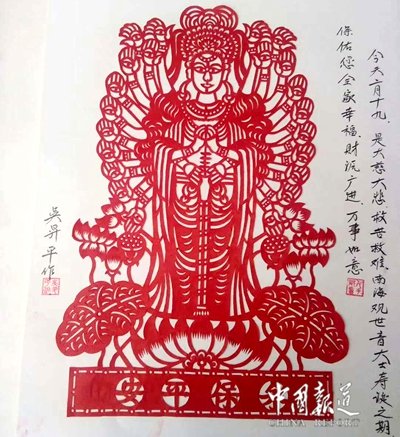 今天二月十九、是大慈大悲救苦救难、南海观世音大士寿诞之期
保佑您全家幸福、财源广进、万事如意
吳昇平作
保佑平安
中国报道
CHINA REPORT